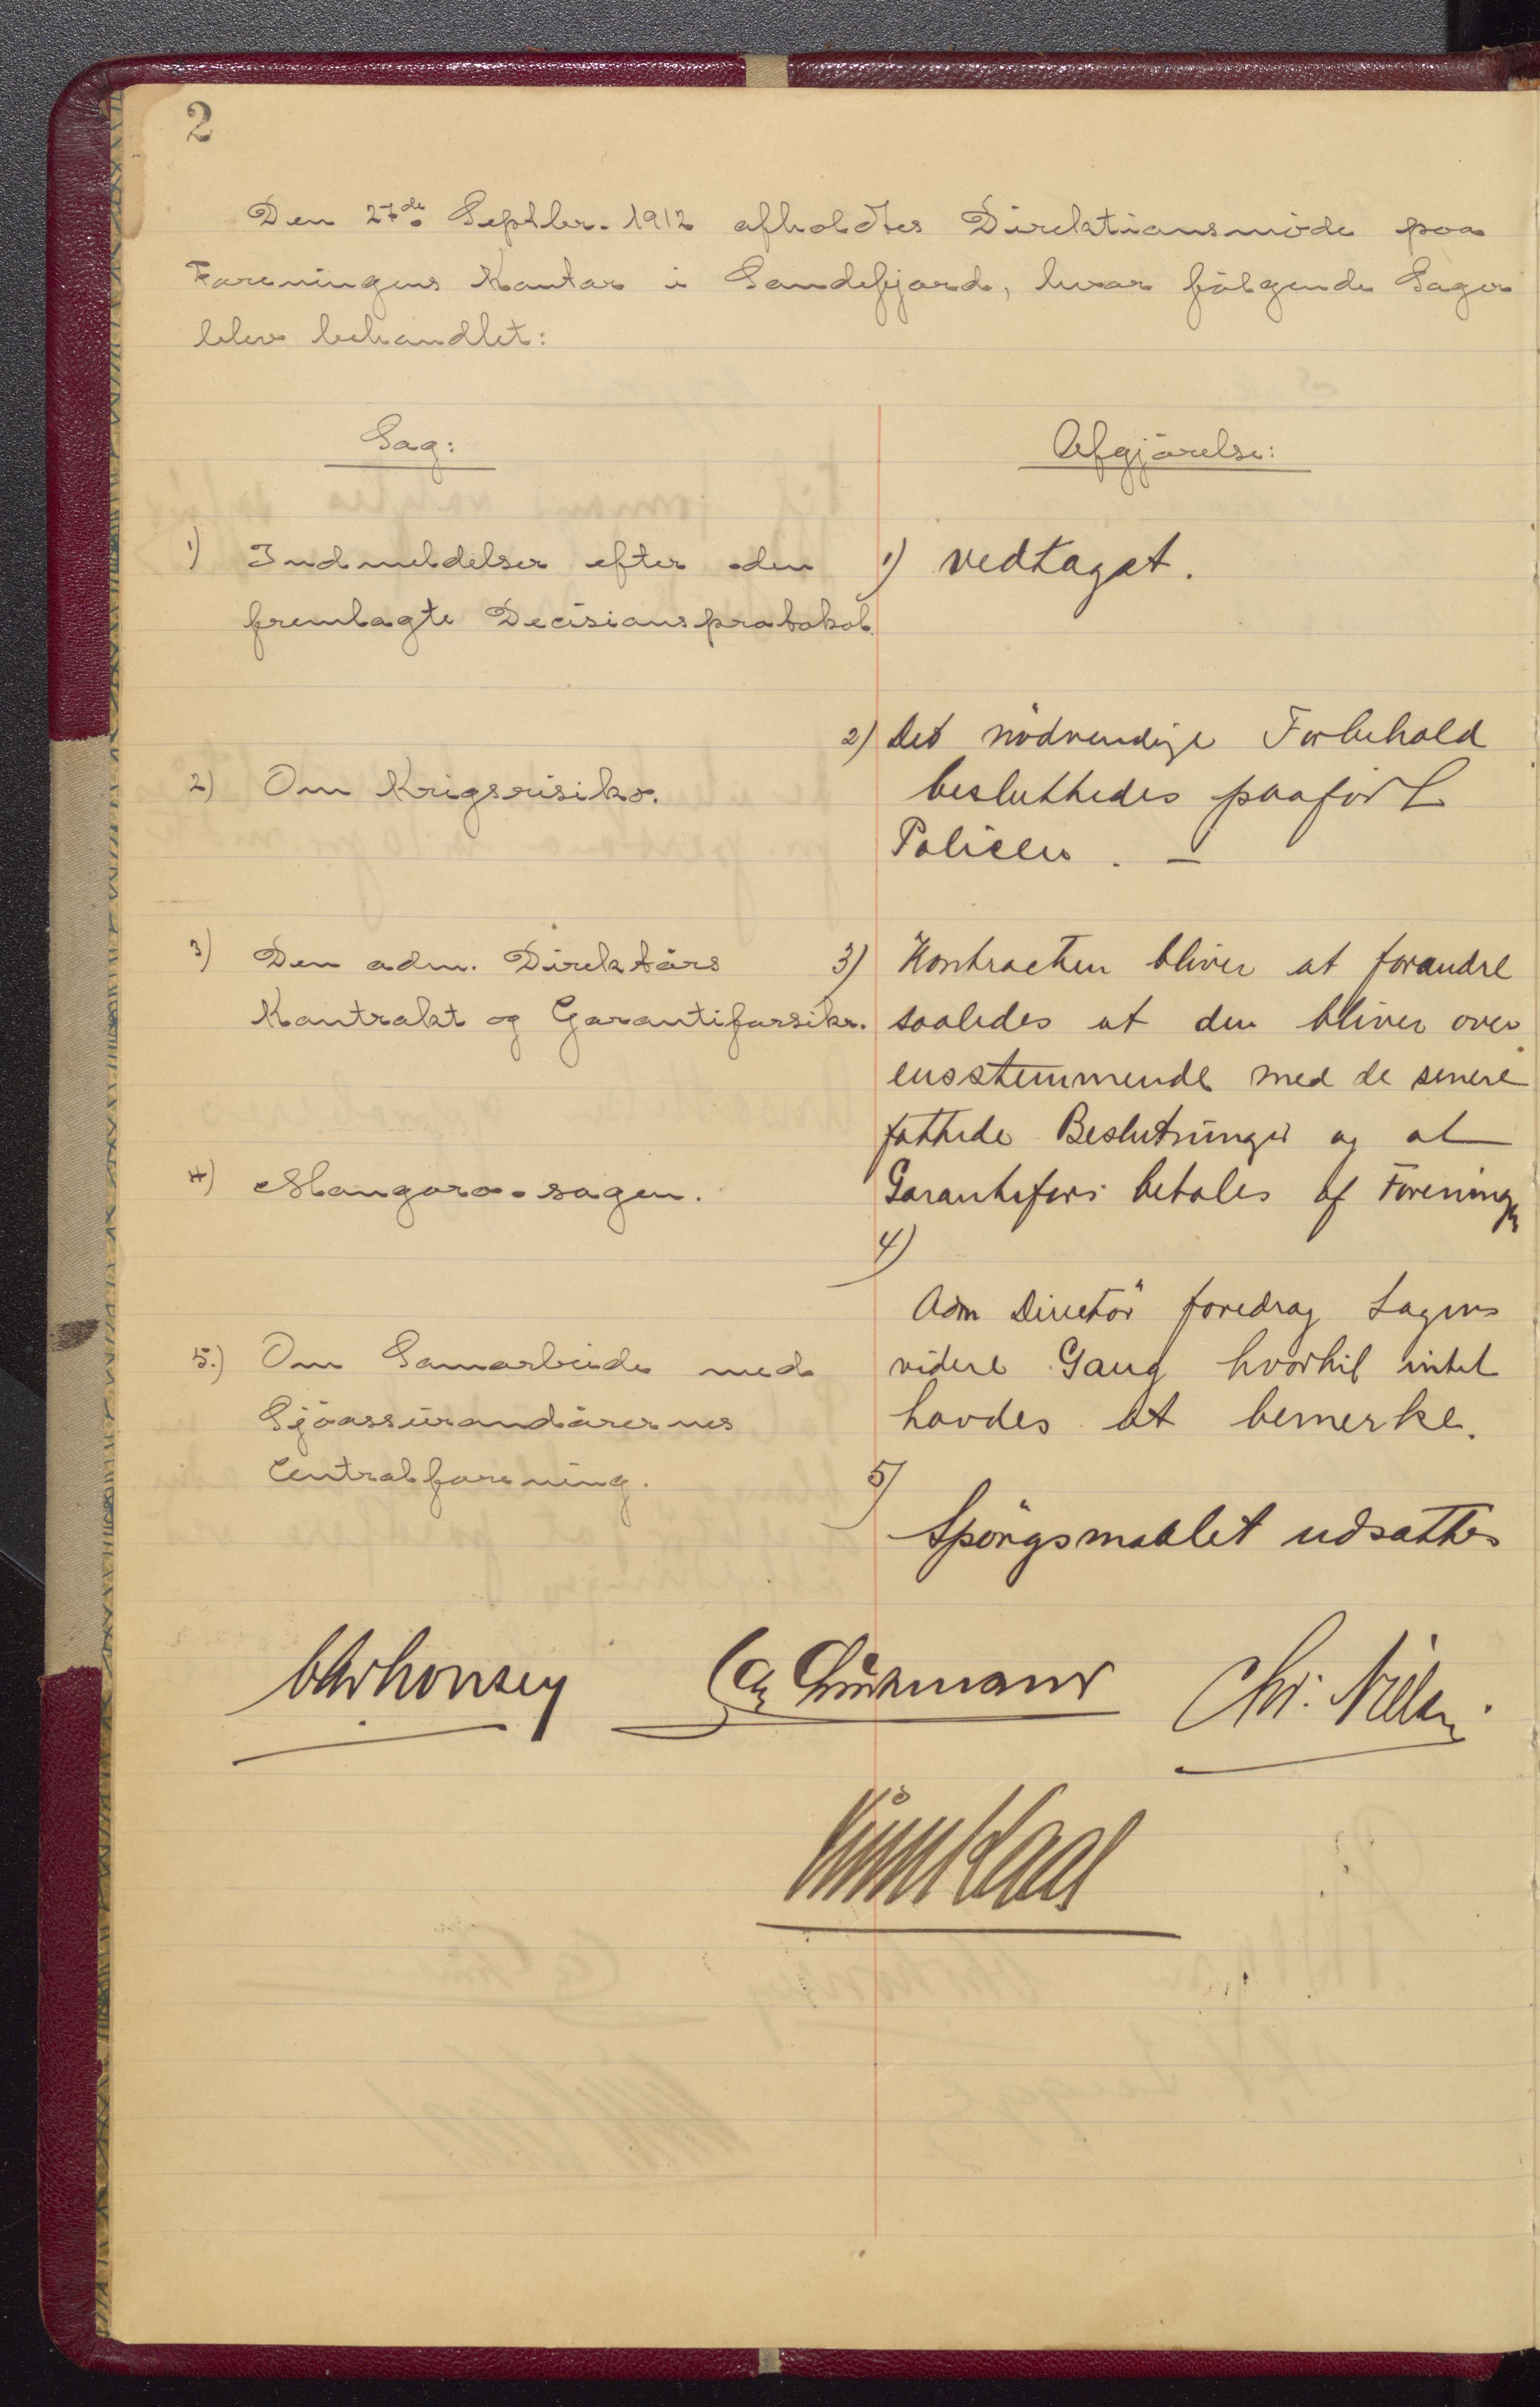 2
Den 27de Septbr. 1912 afholdtes Direktionsmöde paa
Foreningens Kontor i Sandefjord, hvor fölgende Sager
blev behandlet:
Sag:
1) Indmeldelser efter den
fremlagte Decisionsprotokol.
2) Om Krigsrisiko.
3) Den adm. Direktörs
Kontrakt og Garantiforsikr.
4) Mangoro-sagen.
5.) Om Samarbeide med
Sjöassürandörernes
Centralforening.
Afgjörelse:
1) vedtaget.
2) Det nödvendige Forbehold
besluttedes paafört
Policen. –
3) Kontracten bliver at forandre
saaledes at den bliver over
ensstemmende med de senere
fattede Beslutninger og at
Garantifors. betales af Foreningen
4)
Adm Direktör foredrog Sagens
videre Gang hvortil intet
havdes at bemerke.
5)
Spörgsmaalet udsattes
Chr. Nielsen.